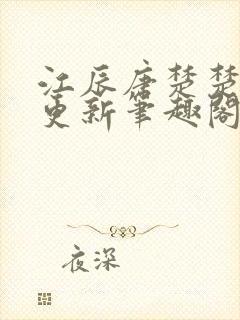 江辰唐楚楚
更新笔趣阁
夜深